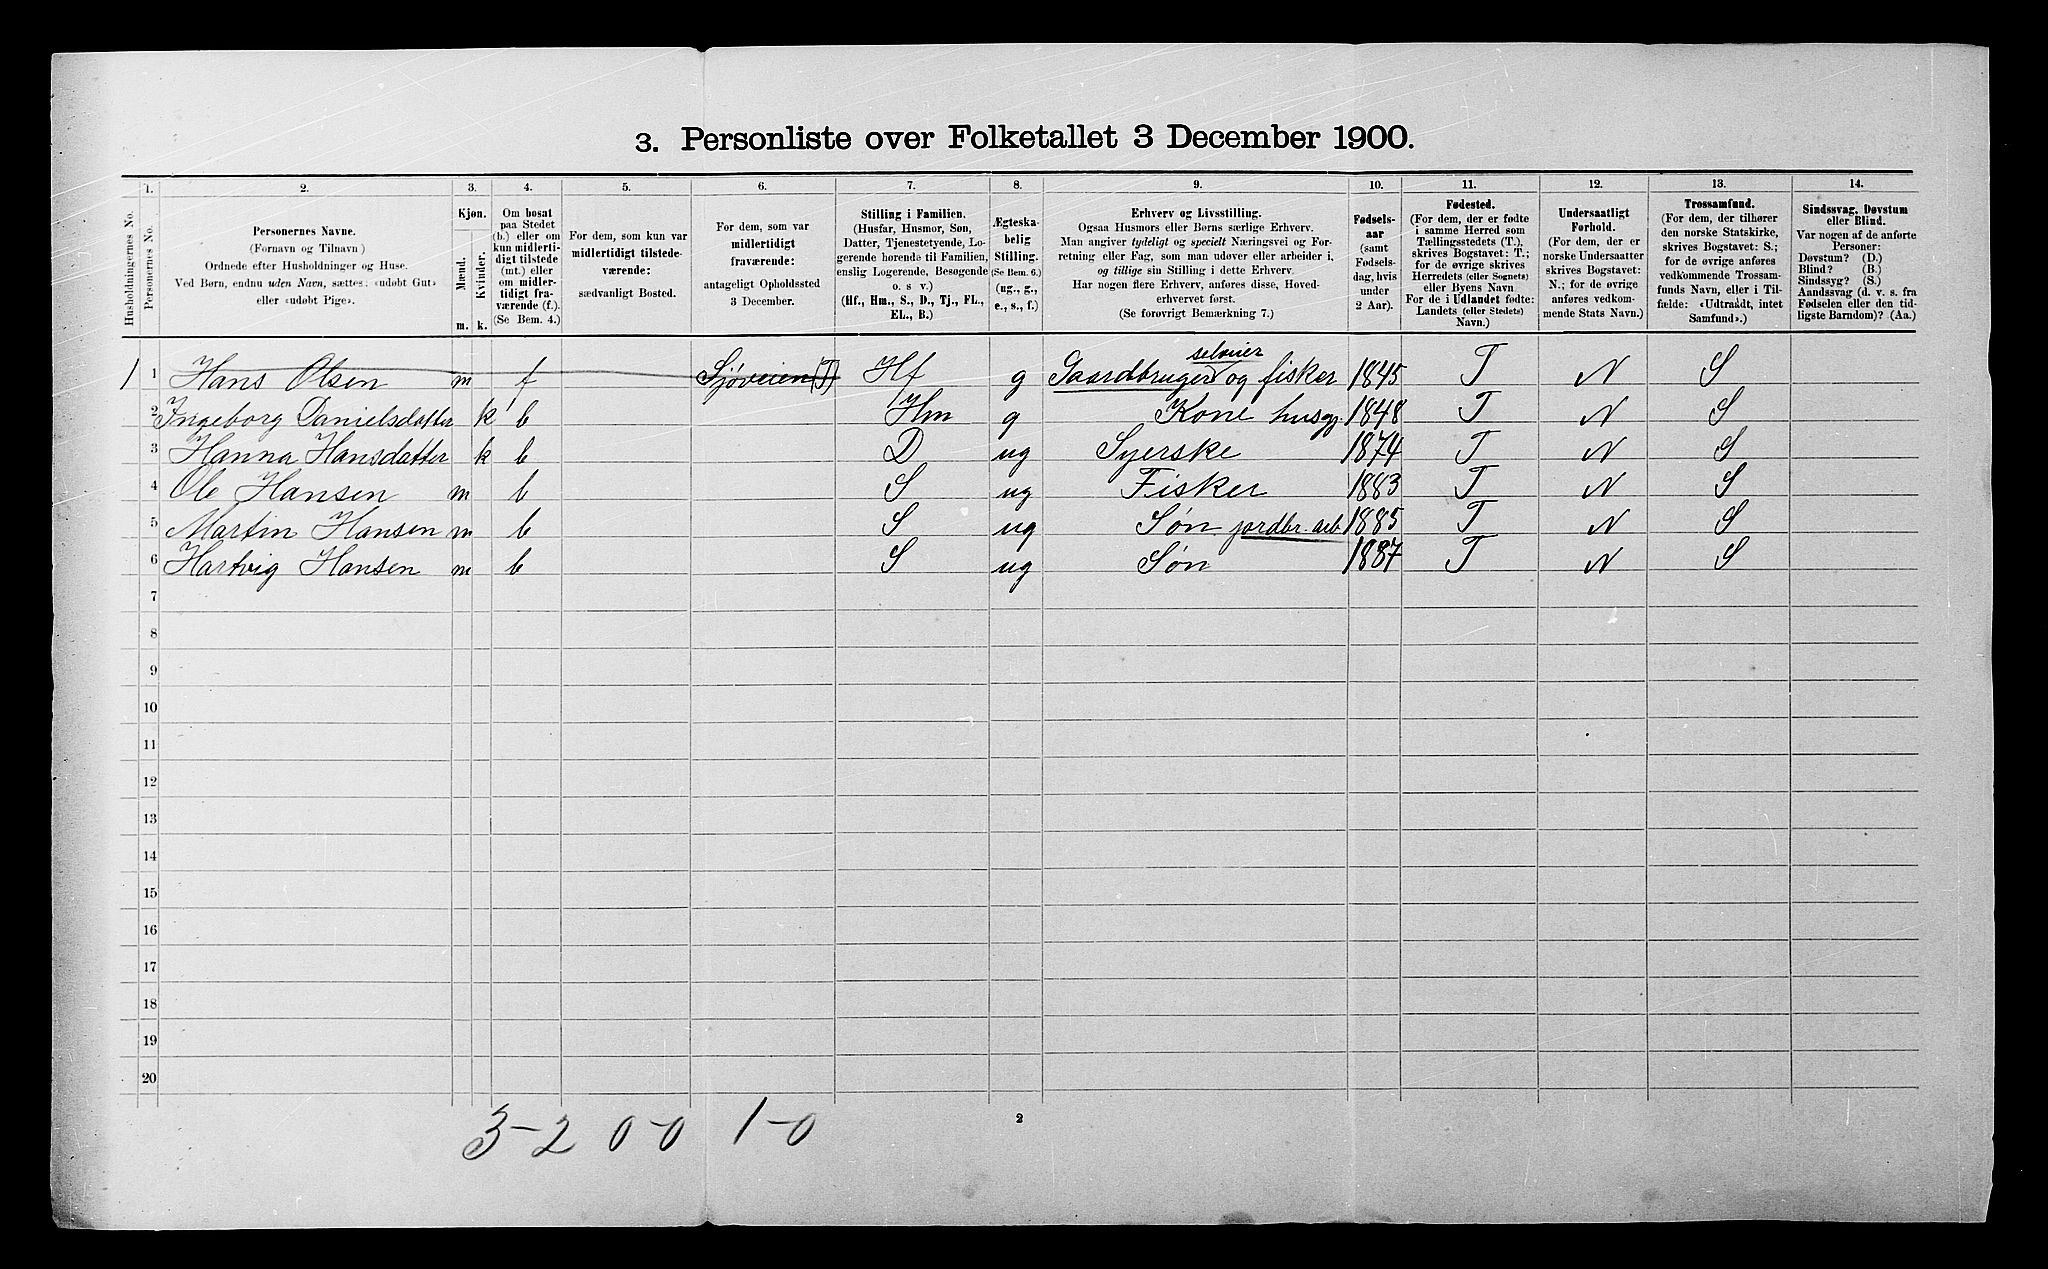 3. Personliste over Folketallet 3 December 1900.
1. 2. 3. 4. 5. 6. 7. 8. 9. 10. 11. 12. 13. 14.
Husholdningernes No.
Personernes No.
Personernes Navne.
(Fornavn og Tilnavn)
Ordnede efter Husholdninger og Huse.
Ved Børn, endnu uden Navn, sættes: «udøbt Gut»
eller «udøbt Pige».
Kjøn.
Mænd.
Kvinder.
m. k.
Om bosat
paa Stedet
(b.) eller om
kun midlerti-
digt tilstede
(mt.) eller
om midler-
tidigt fra-
værende (f.).
(Se Bem. 4.)
For dem, som kun var
midlertidigt tilstede-
værende:
sædvanligt Bosted.
For dem, som var
midlertidigt
fraværende:
antageligt Opholdssted
3 December.
Stilling i Familien.
(Husfar, Husmor, Søn,
Datter, Tjenestetyende, Lo-
gerende hørende til Familien,
enslig Logerende, Besøgende
o. s v.)
(Hf., Hm., S., D., Tj., FL.,
EL., B.)
Ægteska-
belig
Stilling.
(Se Bem. 6.)
(ug., g.,
e., s., f.)
Erhverv og Livsstilling.
Ogsaa Husmors eller Børns særlige Erhverv.
Man angiver tydeligt og specielt Næringsvei og For-
retning eller Fag, som man udøver eller arbeider i,
og tillige sin Stilling i dette Erhverv.
Har nogen flere Erhverv, anføres disse, Hoved-
erhvervet først.
(Se forøvrigt Bemærkning 7.)
Fødsels-
aar
(samt
Fødsels-
dag, hvis
under
2 Aar).
Fødested.
(For dem, der er fødte
i samme Herred som
Tællingsstedets (T.),
skrives Bogstavet: T.;
for de øvrige skrives
Herredets (eller Sognets)
eller Byens Navn
For de i Udlandet fødte:
Landets (eller Stedets)
Navn.)
Undersaatligt
Forhold.
(For dem, der er
norske Undersaatter
skrives Bogstavet:
N.; for de øvrige
anføres vedkom-
mende Stats Navn.)
Trossamfund.
(For dem, der tilhører
den norske Statskirke,
skrives Bogstavet: S.;
for de øvrige anføres
vedkommende Trossam-
funds Navn, eller i Til-
fælde: «Udtraadt, intet
Samfund».)
Sindssvag, Døvstum
eller Blind.
Var nogen af de anførte
Personer:
Døvstum? (D.)
Blind? (B.)
Sindssyg? (S.)
Aandssvag (d. v. s. fra
Fødselen eller den tid-
ligste Barndom)? (Aa.)
1 1 Hans Olsen m f Sjøveien (T) Hf g Gaardbruger selveier og fisker 1845 T N S
2 Ingeborg Danielsdatter k b Hm g Kone husgj. 1848 T N S
3 Hanna Hansdatter k b D ug Syerske 1874 T N S
4 Ole Hansen m b S ug Fisker 1883 T N S
5 Martin Hansen m b S ug Søn jordbr. arb 1885 T N S
6 Hartvig Hansen m b S ug Søn 1887 T N S
7
8
9
10
11
12
13
14
15
16
17
18
19
20
3-2 0-0 1-0
2